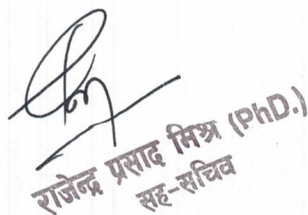 राजेन्द्र प्रसाद मिश्र (PhD.)
सह-सचिव